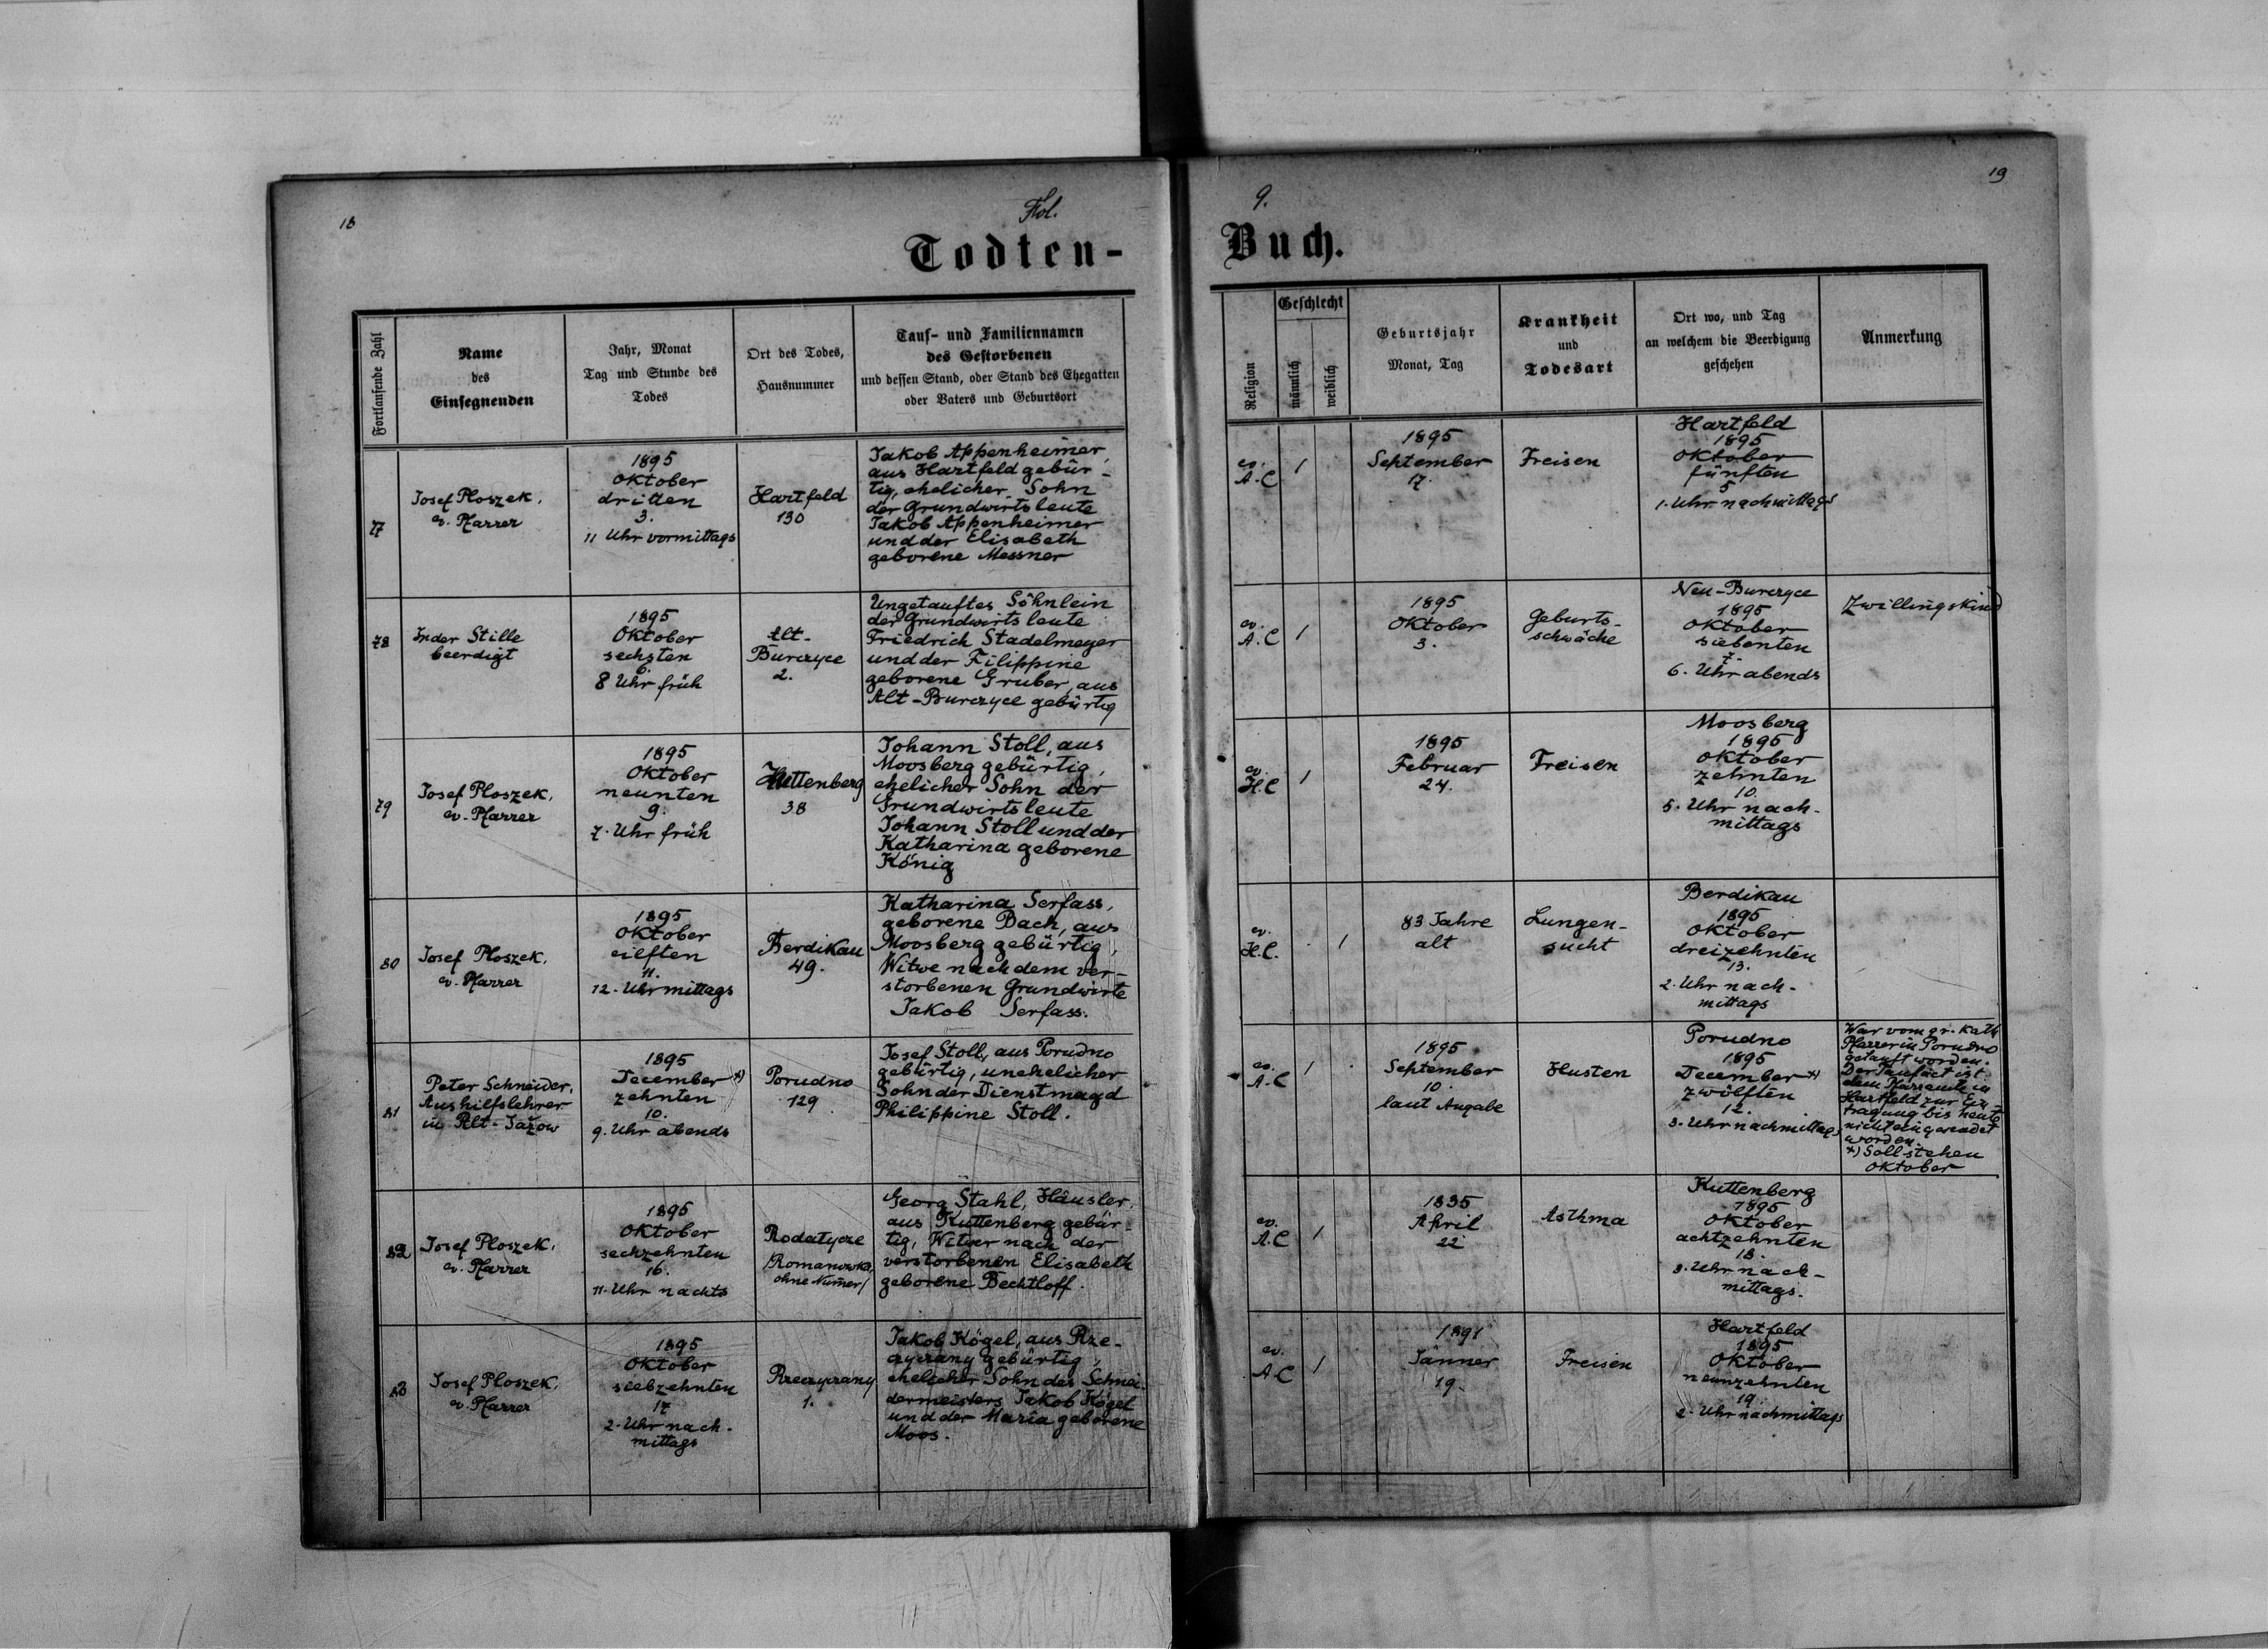 18
Fol.
9.
19
Todten-
Buch.
Fortlaufende Zahl
Name
des
Einsegnenden
Jahr, Monat
Tag und Stunde des
Todes
Ort des Todes,
Hausnummer
Tauf- und Familiennamen
des Gestorbenen
und dessen Stand, oder Stand des Ehegatten
oder Vaters und Geburtsort
Religion
Geschlecht
männlich
weiblich
Geburtsjahr
Monat, Tag
Krankheit
und
Todesart
Ort wo, und Tag
an welchem die Beerdigung
geschehen
Anmerkung
77
Josef Ploszek,
ev. Pfarrer
1895
Oktober
dritten
3.
11 Uhr vormittags
Hartfeld
130
Jakob Appenheimer,
aus Hartfeld gebür-
tig, ehelicher Sohn
der Grundwirtsleute
Jakob Appenheimer
und der Elisabeth
geborene Messner
ev.
A.C
1
1895
September
17.
Freisen
Hartfeld
1895
Oktober
fünften
5
1. Uhr nachmittags
78
In der Stille
beerdigt
1895
Oktober
sechsten
6.
8 Uhr früh
Alt-
Burczyce
2.
Ungetauftes Söhnlein
der Grundwirtsleute
Friedrich Stadelmeyer
und der Filippine
geborene Gruber, aus
Alt-Burczyce gebürtig
ev.
A.C
1
1895
Oktober
3.
Geburts-
schwäche
Neu-Burczyce
1895
Oktober
siebenten
7.
6. Uhr abends
Zwillingskind
79
Josef Ploszek,
ev. Pfarrer
1895
Oktober
neunten
9.
7. Uhr früh
Kuttenberg
38
Johann Stoll, aus
Moosberg gebürtig,
ehelicher Sohn der
Grundwirtsleute
Johann Stoll und der
Katharina geborene
König
ev.
H.C
1
1895
Februar
24.
Freisen
Moosberg
1895
Oktober
zehnten
10.
5. Uhr nach-
mittags
80
Josef Ploszek,
ev. Pfarrer
1895
Oktober
eilften
11.
12. Uhr mittags
Berdikau
49.
Katharina Serfass,
geborene Bach, aus
Moosberg gebürtig,
Witwe nach dem ver-
storbenen Grundwirte
Jakob Serfass.
ev.
H.C.
1
83 Jahre
alt
Lungen-
sucht
Berdikau
1895
Oktober
dreizehnten
13.
2. Uhr nach-
mittags
81
Peter Schneider,
Aushilfslehrer
in Alt-Jażow
1895
December x)
zehnten
10.
9. Uhr abends
Porudno
129
Josef Stoll, aus Porudno
gebürtig, unehelicher
Sohn der Dienstmagd
Philippine Stoll.
ev.
A.C
1
1895
September
10.
laut Angabe
Husten
Porudno
1895
December x)
zwölften
12.
3. Uhr nachmittags
War vom gr. kath
Pfarrer in Porudno
getauft worden.
Der Taufact ist
dem Pfarramte in
Hartfeld zur Ein-
tragung bis heute
nicht eingesendet
worden.
x) Soll stehen
Oktober
82
Josef Ploszek,
ev. Pfarrer
1895
Oktober
sechzehnten
16.
11. Uhr nachts
Rodatycze
/Romanowka,
ohne Numer/
Georg Stahl, Häusler,
aus Kuttenberg gebür-
tig, Witwer nach der
verstorbenen Elisabeth
geborene Bechtloff.
ev.
A.C
1
1835
April
22
Asthma
Kuttenberg
1895
Oktober
achtzehnten
18.
3. Uhr nach-
mittags.
83
Josef Ploszek,
ev. Pfarrer
1895
Oktober
siebzehnten
17
2. Uhr nach-
mittags
Rzeczyczany
1.
Jakob Kögel, aus Rze-
czyczany gebürtig,
ehelicher Sohn des Schnei-
dermeisters Jakob Kögel
und der Maria geborene
Moos.
ev.
A.C
1
1891
Jänner
19.
Freisen
Hartfeld
1895
Oktober
neunzehnten
19.
2. Uhr nachmittags